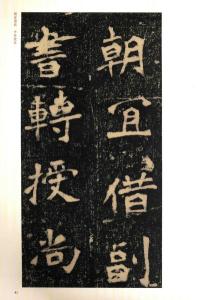 朝宜借副
書轉授尚